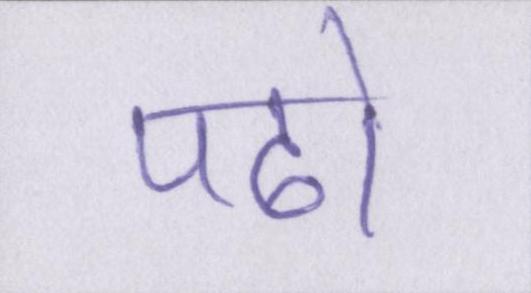 पढो